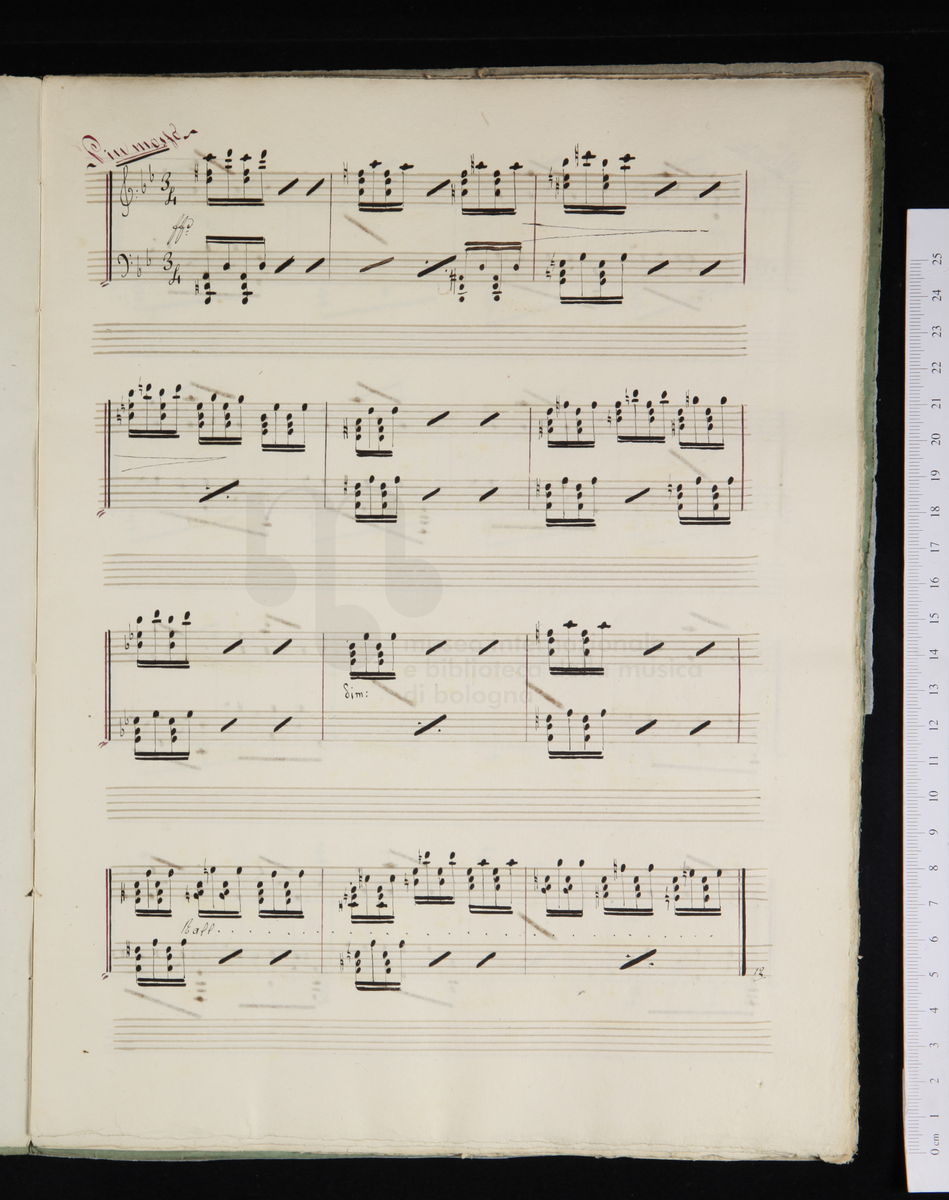 Piu mosso
3/4
ffo
3/4
museo internazionale
e biblioteca della musica
di bologna
Dim:
Rall. . . . . . . . . . . . . . .
12.
0 cm 1 2 3 4 5 6 7 8 9 10 11 12 13 14 15 16 17 18 19 20 21 22 23 24 25